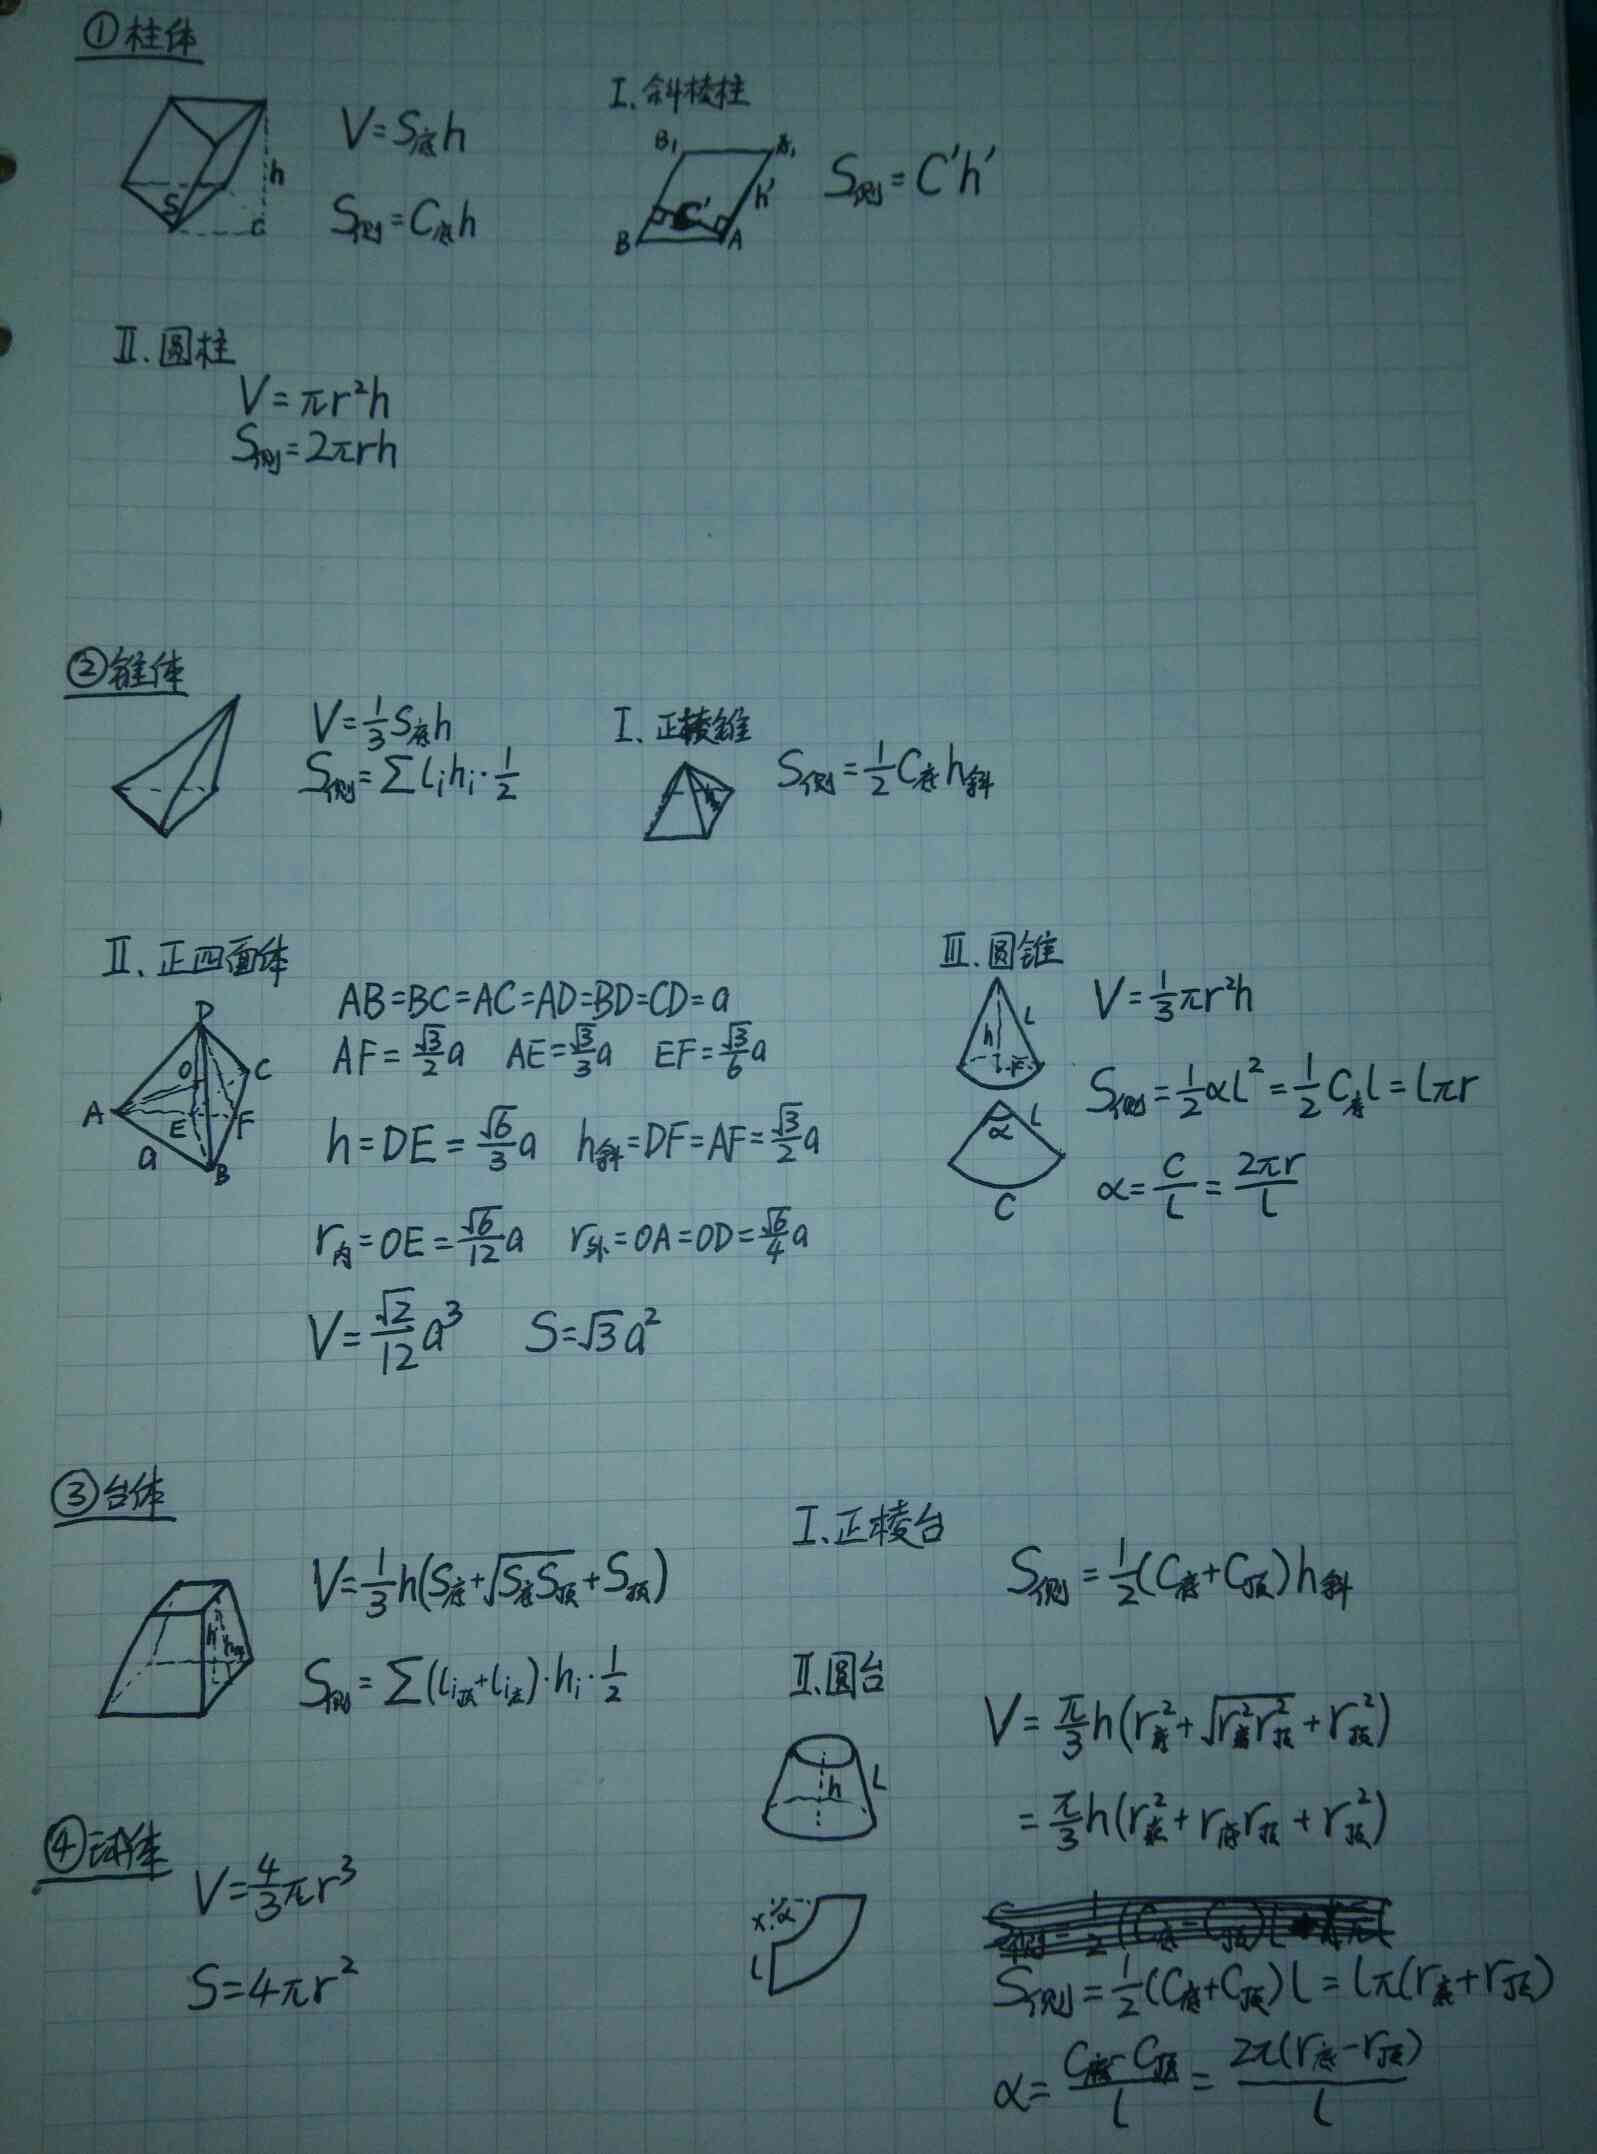 ①柱体
V=S底h
S侧=C底h
h
S
I.斜棱柱
B₁ A₁
C' h'
B A
S侧=C'h'
II.圆柱
V=πr²h
S侧=2πrh
②锥体
V=\frac{1}{3}S底h
S侧=∑lᵢhᵢ·\frac{1}{2}
I.正棱锥
S侧=\frac{1}{2}C底h斜
II.正四面体
D
O C
A E F
a B
AB=BC=AC=AD=BD=CD=a
AF=\frac{√3}{2}a AE=\frac{√3}{3}a EF=\frac{√3}{6}a
h=DE=\frac{√6}{3}a h斜=DF=AF=\frac{√3}{2}a
r内=OE=\frac{√6}{12}a r外=OA=OD=\frac{√6}{4}a
V=\frac{√2}{12}a³ S=√3a²
III.圆锥
h l
r
α l
C
V=\frac{1}{3}πr²h
S侧=\frac{1}{2}αl²=\frac{1}{2}C底l=lπr
α=\frac{C}{l}=\frac{2πr}{l}
③台体
h h斜
V=\frac{1}{3}h(S底+√(S底S顶)+S顶)
S侧=∑(lᵢ顶+lᵢ底)·hᵢ·\frac{1}{2}
I.正棱台
S侧=\frac{1}{2}(C底+C顶)h斜
II.圆台
h l
V=\frac{π}{3}h(r底²+√(r底²r顶²)+r顶²)
=\frac{π}{3}h(r底²+r底r顶+r顶²)
x α
l
S侧=\frac{1}{2}(C底+C顶)l=lπ(r底+r顶)
α=\frac{C底-C顶}{l}=\frac{2π(r底-r顶)}{l}
④球体
V=\frac{4}{3}πr³
S=4πr²